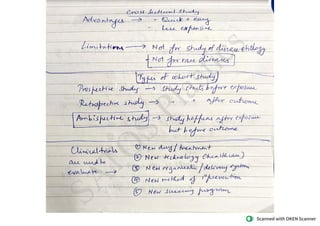 Cross sectional study
Advantages → - Quick & easy
- Less expensive
Limitations → Not for study of disease etiology
Not for rare diseases
Types of cohort study
Prospective study → study starts before exposure
Retrospective study → " " after outcome
Ambispective study → study happens after exposure
but before outcome
Clinical trials ① New drug / treatment
are used to ② New technology (healthcare)
evaluate → ③ New organisation / delivery system
④ New method of 1° prevention
⑤ New screening program
Scanned with OKEN Scanner